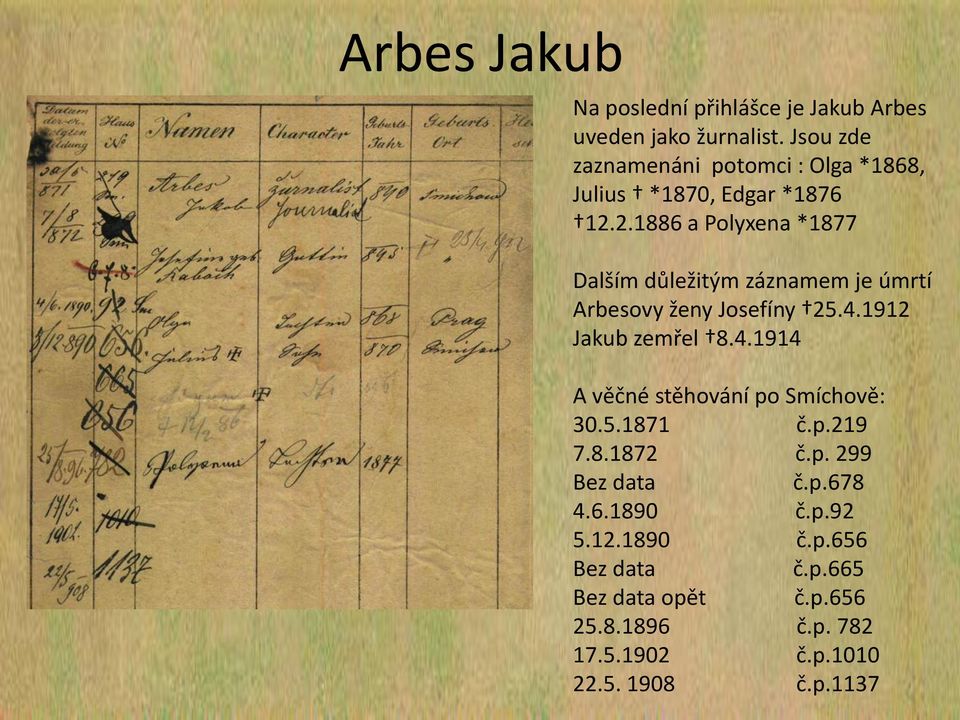 Arbes Jakub
Na poslední přihlášce je Jakub Arbes
uveden jako žurnalist. Jsou zde
zaznamenáni potomci : Olga *1868,
Julius † *1870, Edgar *1876
†12.2.1886 a Polyxena *1877
Dalším důležitým záznamem je úmrtí
Arbesovy ženy Josefíny †25.4.1912
Jakub zemřel †8.4.1914
A věčné stěhování po Smíchově:
30.5.1871 č.p.219
7.8.1872 č.p. 299
Bez data č.p.678
4.6.1890 č.p.92
5.12.1890 č.p.656
Bez data č.p.665
Bez data opět č.p.656
25.8.1896 č.p. 782
17.5.1902 č.p.1010
22.5. 1908 č.p.1137
Datum
Haus No Namen Character Geburts Jahr Geburts Ort
30/5 871 Arbes Jakob žurnalist Journalist 840 Smichow
7/8 872
Josefine geb. Gattin
678
4/6. 1890. 92 Sm Olga Tochter 868 Prag
656 Julius † Sohn 870 Smichow
665
656
† 12/2 86
25/8.96. 782 Polyxena Tochter 1877
17/5. 1902. 1010
22/5 908 1137